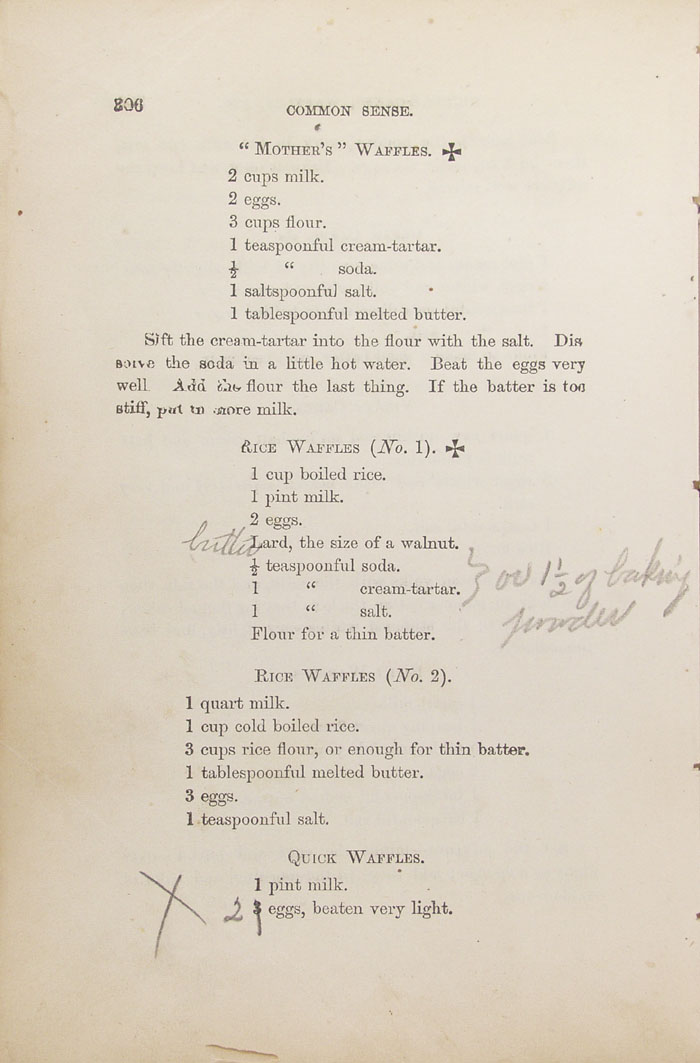 206
COMMON SENSE.
“ MOTHER'S ” WAFFLES. ✠
2 cups milk.
2 eggs.
3 cups flour.
1 teaspoonful cream-tartar.
½ “ soda.
1 saltspoonful salt.
1 tablespoonful melted butter.
Sift the cream-tartar into the flour with the salt. Dis
solve the soda in a little hot water. Beat the eggs very
well. Add the flour the last thing. If the batter is too
stiff, put in more milk.
RICE WAFFLES (No. 1). ✠
1 cup boiled rice.
1 pint milk.
2 eggs.
butter Lard, the size of a walnut.
½ teaspoonful soda.
1 “ cream-tartar. } or 1½ of baking
1 “ salt. powder
Flour for a thin batter.
RICE WAFFLES (No. 2).
1 quart milk.
1 cup cold boiled rice.
3 cups rice flour, or enough for thin batter.
1 tablespoonful melted butter.
3 eggs.
1 teaspoonful salt.
QUICK WAFFLES.
1 pint milk.
X 2 3 eggs, beaten very light.